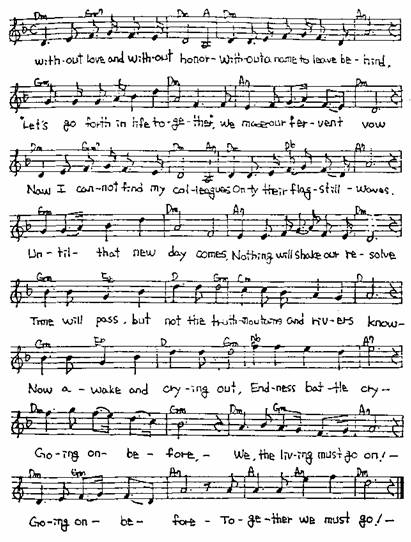 Dm Gm7 Dm A Dm Am
with-out love and with-out honor- with-out a name to leave be-hind.
Gm Dm A7 Dm
"Let's go forth in life to-ge-ther", we make our fer-vent vow
Dm Gm7 Dm A7 Dm Bb A7
Now I can-not find my col-leagues Only their flag-still-waves.
Gm Dm A7
Un-til- that new day comes, Nothing will shake our re-solve
Gm D Gm Cm
Time will pass, but not the truth-Moutains and riv-ers know-
Gm D Gm Dm A7
Now a-wake and cry-ing out, End-ness bat-tle cry-
Dm Gm Am Gm Dm
Go-ing on- be-fore,- We, the liv-ing must go on!-
Dm Gm A7 A7 Dm
Go-ing on- be-fore- To-ge-ther we must go!-